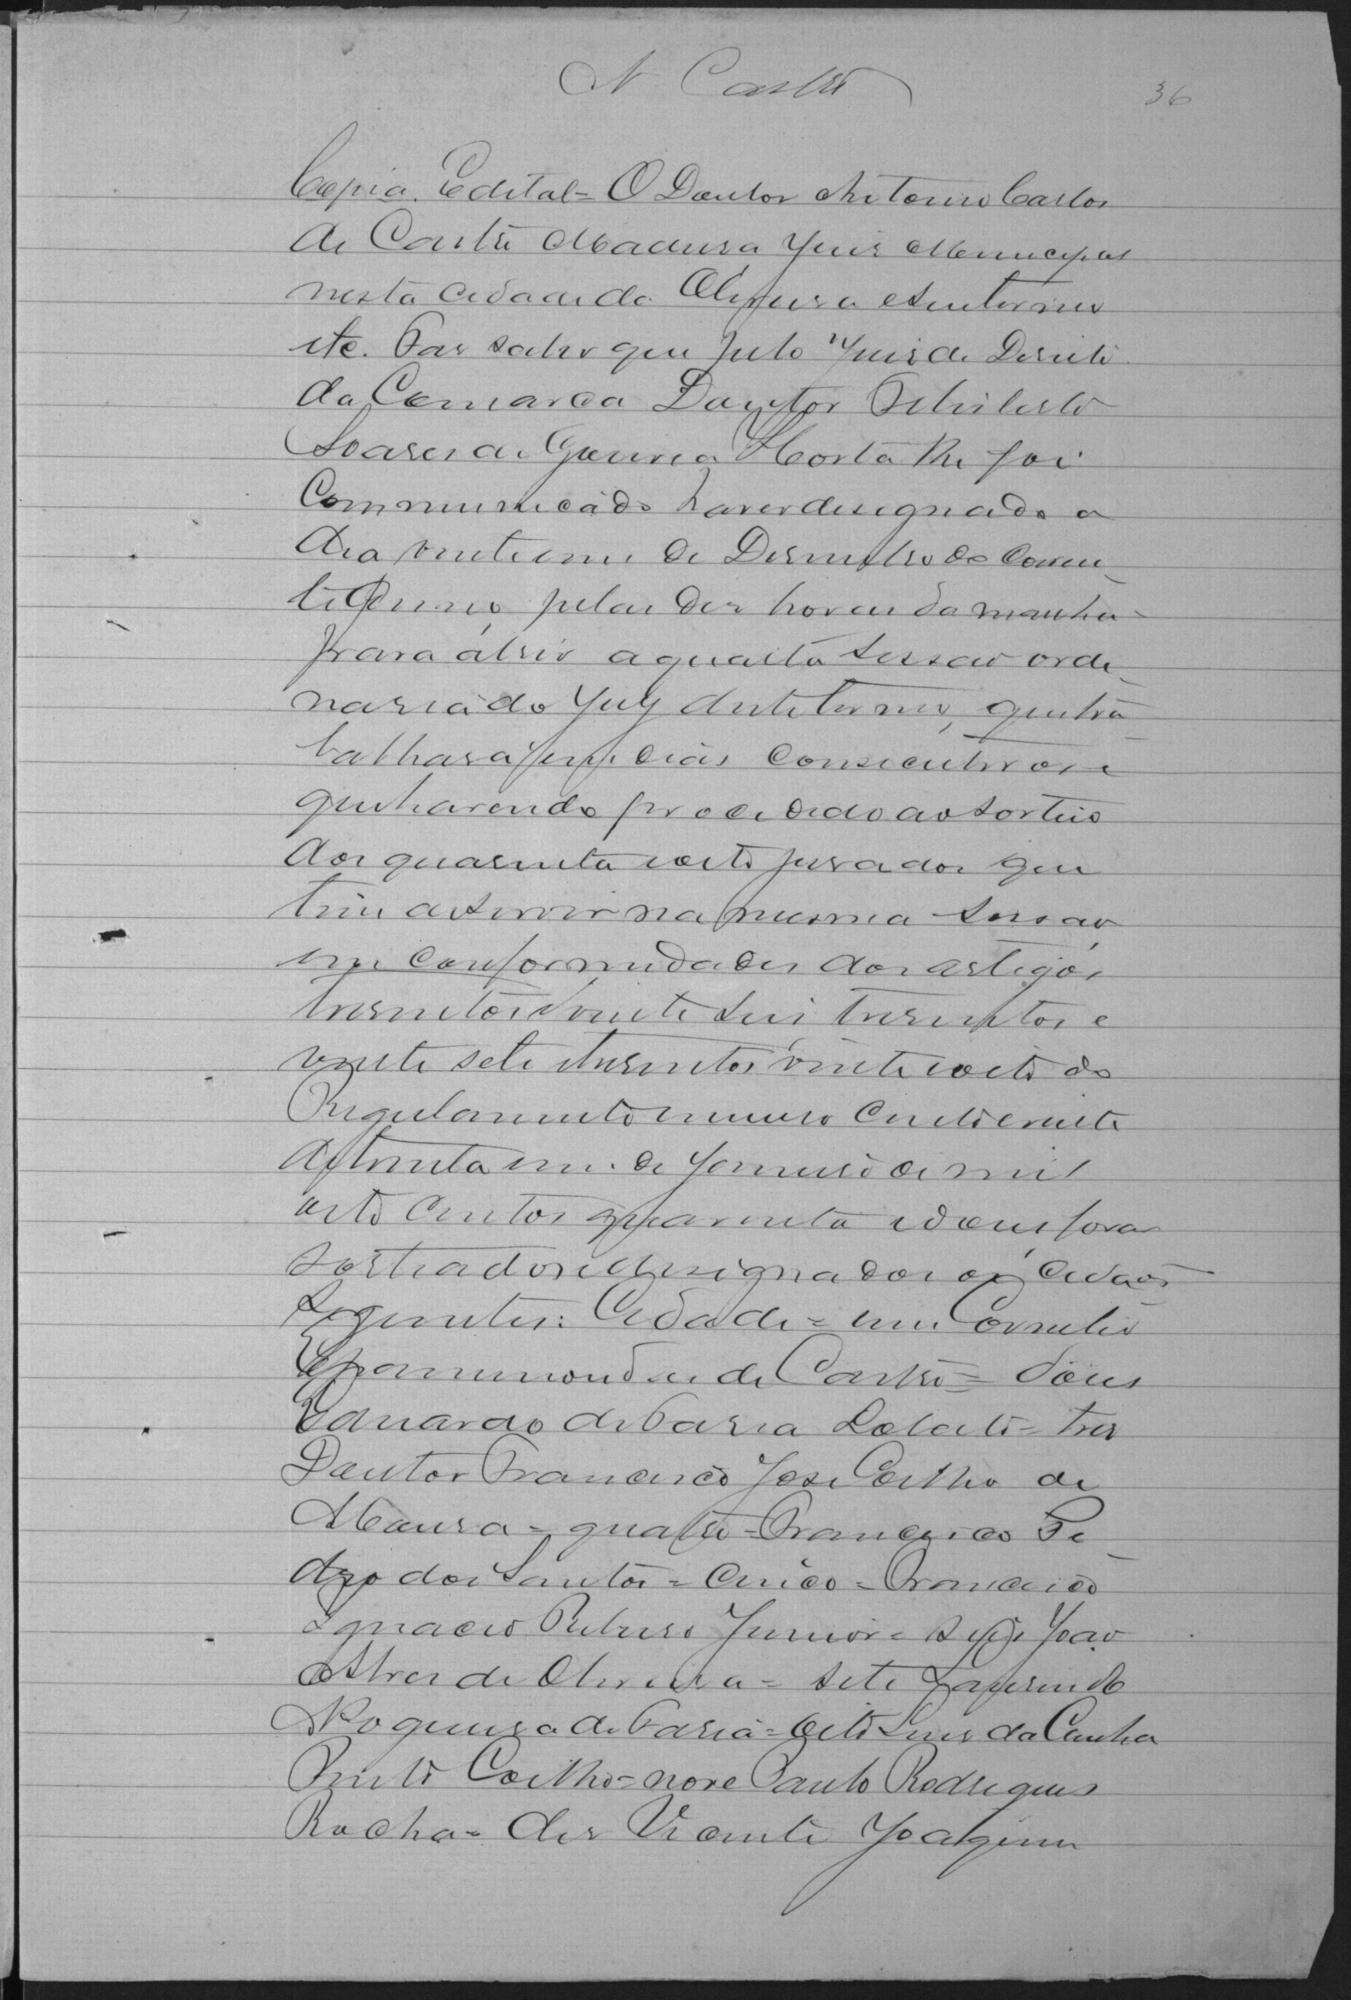 N Castro
36
Copia. Edital = O Doutor Antonio Carlos
de Castro Madeira Juis Municipal
nesta cidade da Oliveira e seu termo
etc. Fas saber que pelo Juis de Direito
da Comarca Doutor
Soares de Gouvea Horta me foi
Communicado haver designado o
dia vinte um de Desembro do Corren_
te anno, pelas des horas da manhã
para abrir a quarta sessão ordi_
naria do Jury deste termo, que tra_
balhará em dias consecutivos e
que havendo procedido ao sorteio
dos quarenta e oito jurados que
tem a servir na mesma sessão
em conformidades dos artigos
tresentos vinte seis tresentos e
vinte sete e tresentos vinte e oito do
Regulamento numero cento e vinte
de trinta um de Janeiro de mil
oito centos quarenta e dous forão
sorteados e designados os cidãos
seguintes: Cidade = um Cornelio
Epaminondas de Castro = dous
Eduardo de Faria Lobato = tres
Doutor Francisco José Coelho de
Moura = quatro = Francisco Pe_
dro dos Santos = cinco = Francisco
Ignacio Ribeiro Junior = seis João
Alves de Oliveira = sete
Nogueira de Faria = oito Luis da Cunha
Pinto Coelho = nove Paulo Rodrigues
Rocha = des Vicente Joaquim